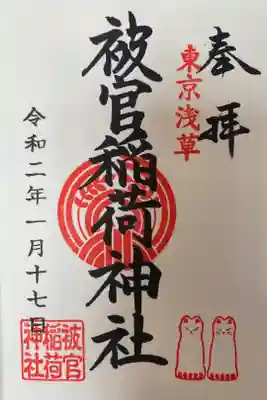 奉拝
東京浅草
被官稲荷神社
令和二年一月十七日
被官
稲荷
神社